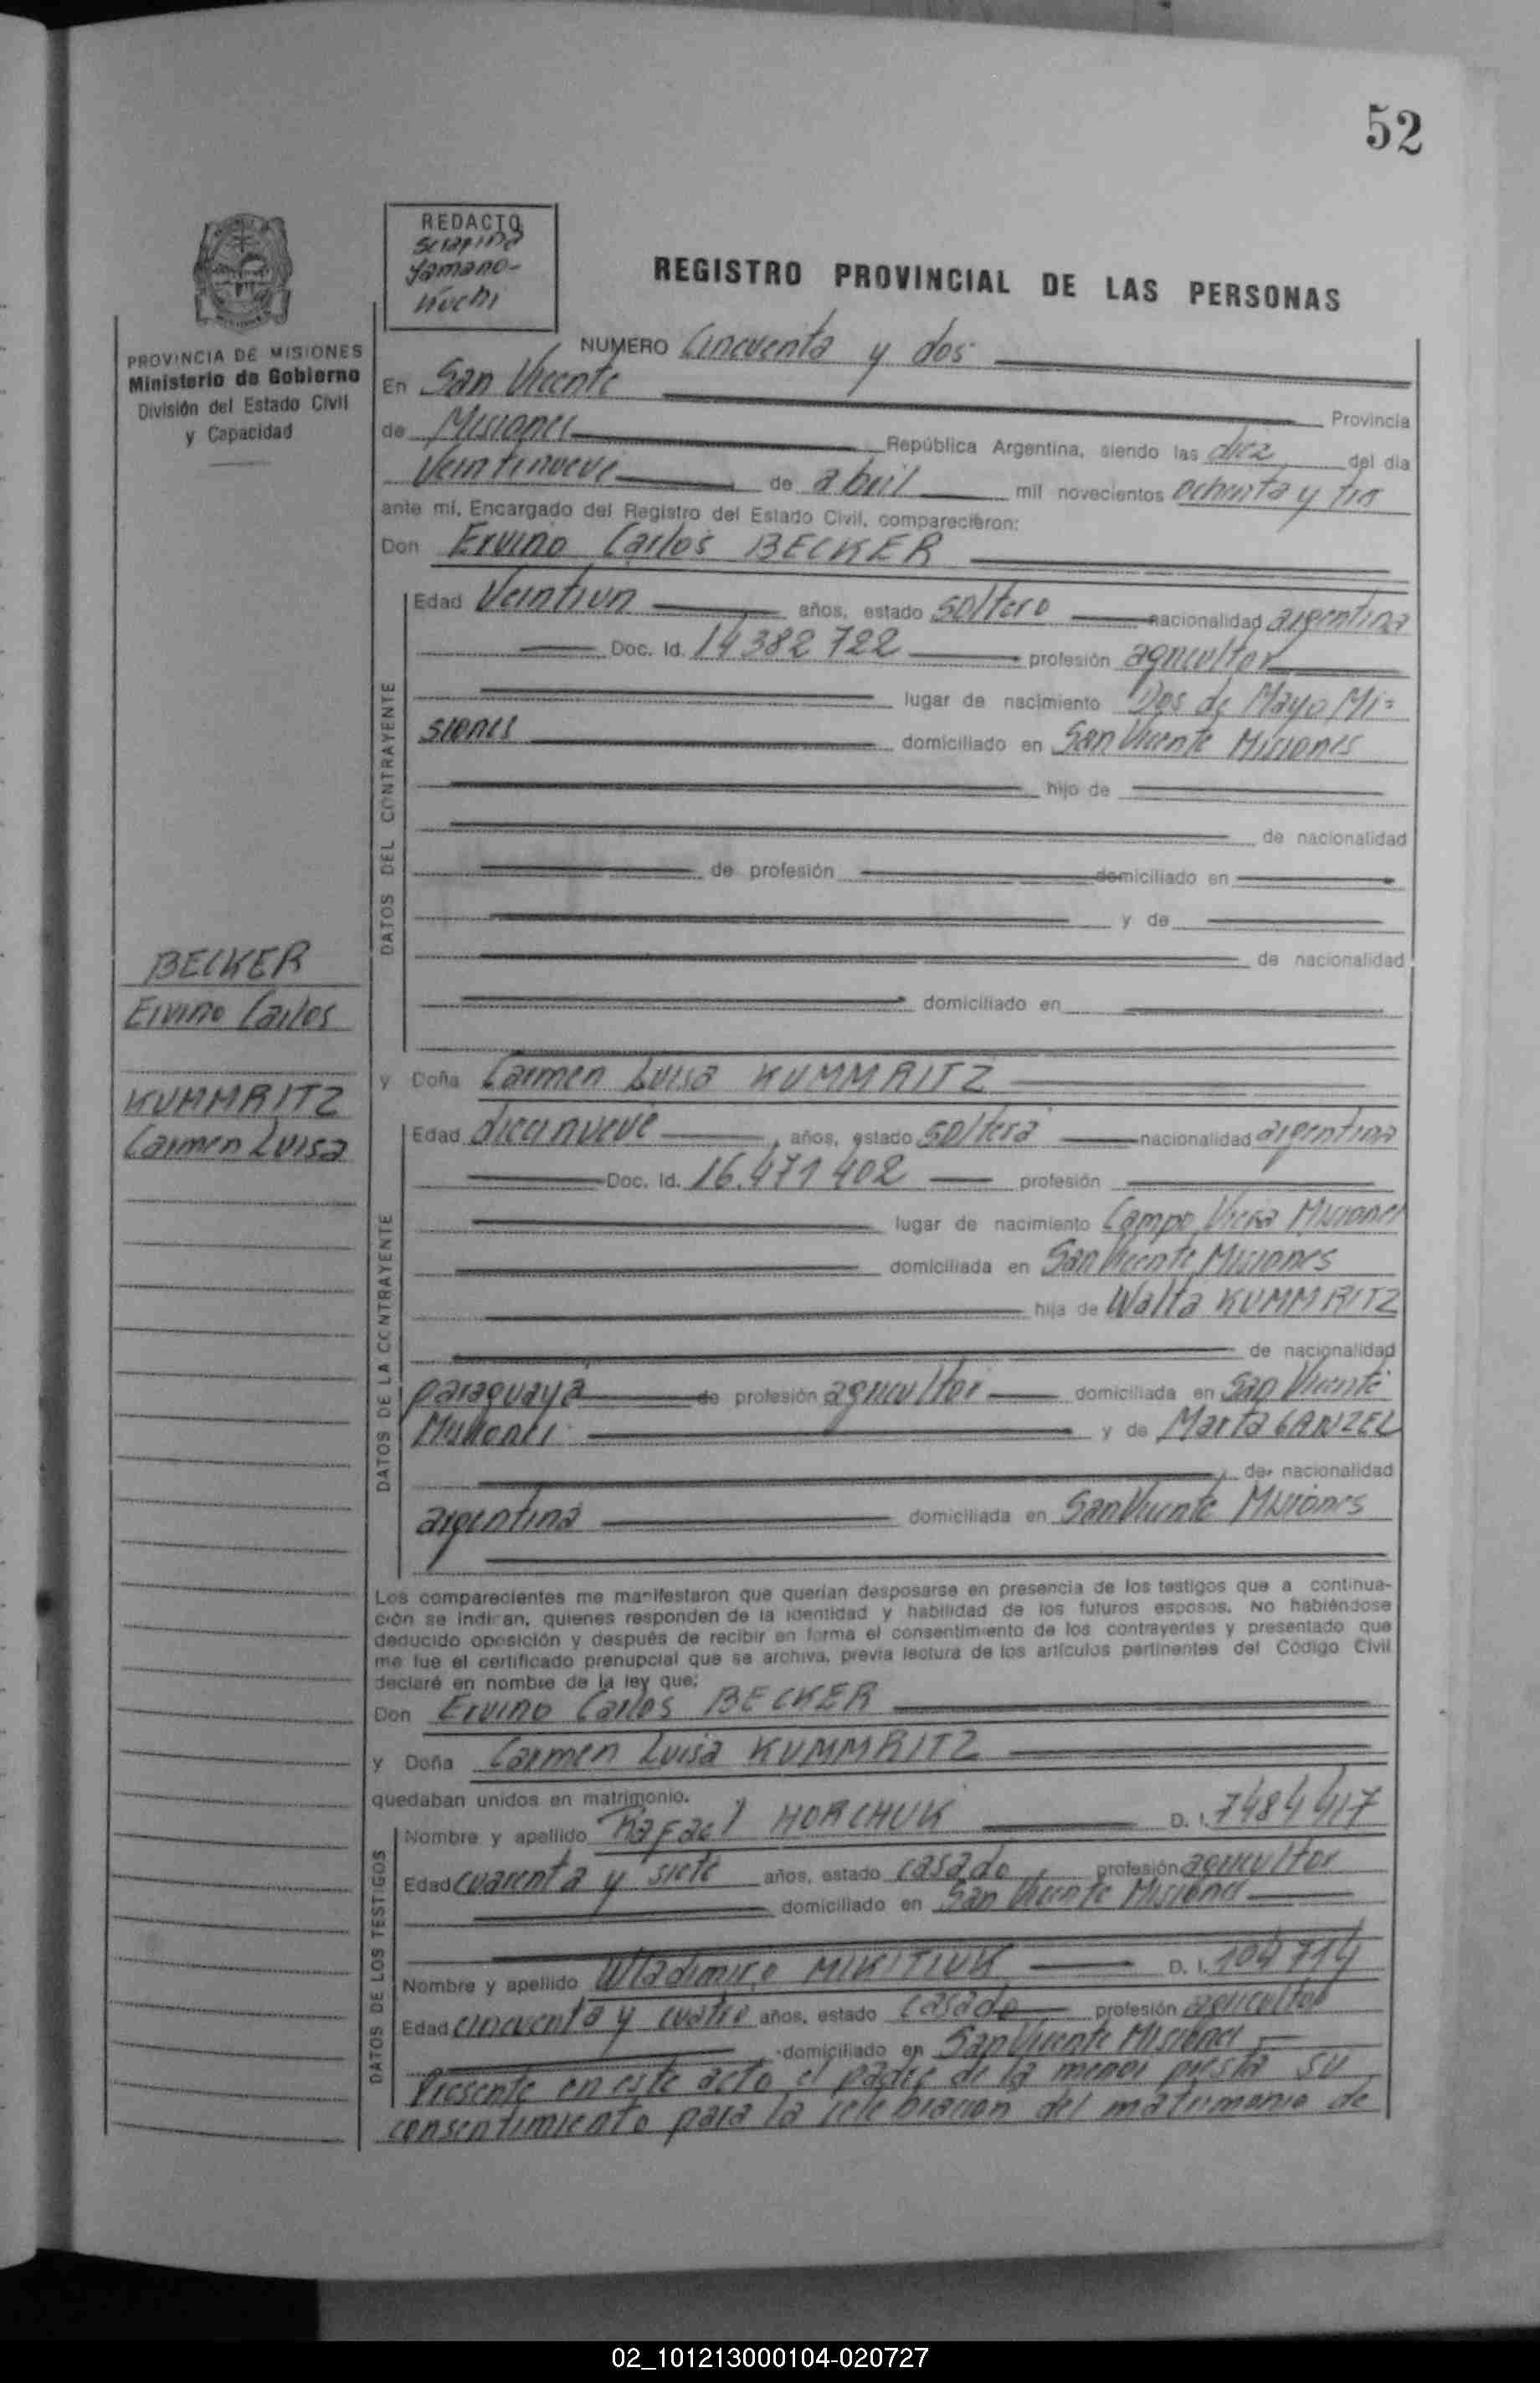 52
REDACTO
Serapina
Yamano-
iuchi
REGISTRO PROVINCIAL DE LAS PERSONAS
PROVINCIA DE MISIONES
Ministerio de Gobierno
División del Estado Civil
y Capacidad
NUMERO Cincuenta y dos
En San Vicente Provincia
de Misiones República Argentina, siendo las diez del día
Veintinueve de abril mil novecientos ochenta y tres
ante mí, Encargado del Registro del Estado Civil, comparecieron:
Don Ervino Carlos BECKER
DATOS DEL CONTRAYENTE
Edad Veintiun años, estado soltero nacionalidad argentina
Doc. Id. 14382722 profesión agricultor
lugar de nacimiento Dos de Mayo Mi=
siones domiciliado en San Vicente Misiones
hijo de
de nacionalidad
de profesión domiciliado en
y de
de nacionalidad
domiciliado en
BECKER
Ervino Carlos
KUMMRITZ
Carmen Luisa
y Doña Carmen Luisa KUMMRITZ
DATOS DE LA CONTRAYENTE
Edad diecinueve años, estado soltera nacionalidad argentina
Doc. Id. 16.471402 profesión
lugar de nacimiento Campo Viera Misiones
domiciliada en San Vicente Misiones
hija de Walta KUMMRITZ
de nacionalidad
paraguaya de profesión agricultor domiciliada en San Vicente
Misiones y de Marta GANZEL
de nacionalidad
argentina domiciliada en San Vicente Misiones
Los comparecientes me manifestaron que querían desposarse en presencia de los testigos que a continua-
ción se indican, quienes responden de la identidad y habilidad de los futuros esposos. No habiéndose
deducido oposición y después de recibir en forma el consentimiento de los contrayentes y presentado que
me fue el certificado prenupcial que se archiva, previa lectura de los artículos pertinentes del Código Civil
declaré en nombre de la ley que:
Don Ervino Carlos BECKER
y Doña Carmen Luisa KUMMRITZ
quedaban unidos en matrimonio.
DATOS DE LOS TESTIGOS
Nombre y apellido Rafael HORCHUK D. I. 7484417
Edad cuarenta y siete años, estado casado profesión agricultor
domiciliado en San Vicente Misiones
Nombre y apellido Wladimiro MIKITIUK D. I. 104714
Edad cincuenta y cuatro años, estado casado profesión agricultor
domiciliado en San Vicente Misiones
Presente en este acto el padre de la menor presta su
consentimiento para la celebracion del matrimonio de
02_101213000104-020727